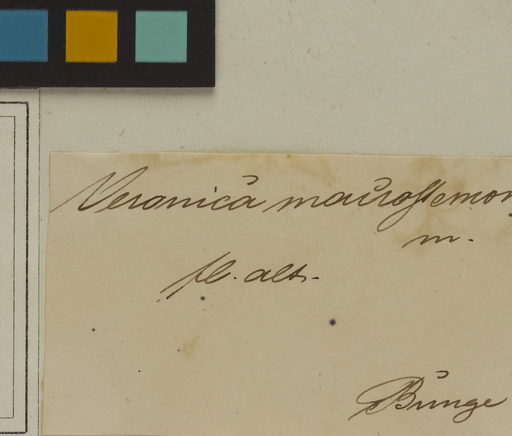 Veronica macrostemon
m.
fl. alt.
Bunge